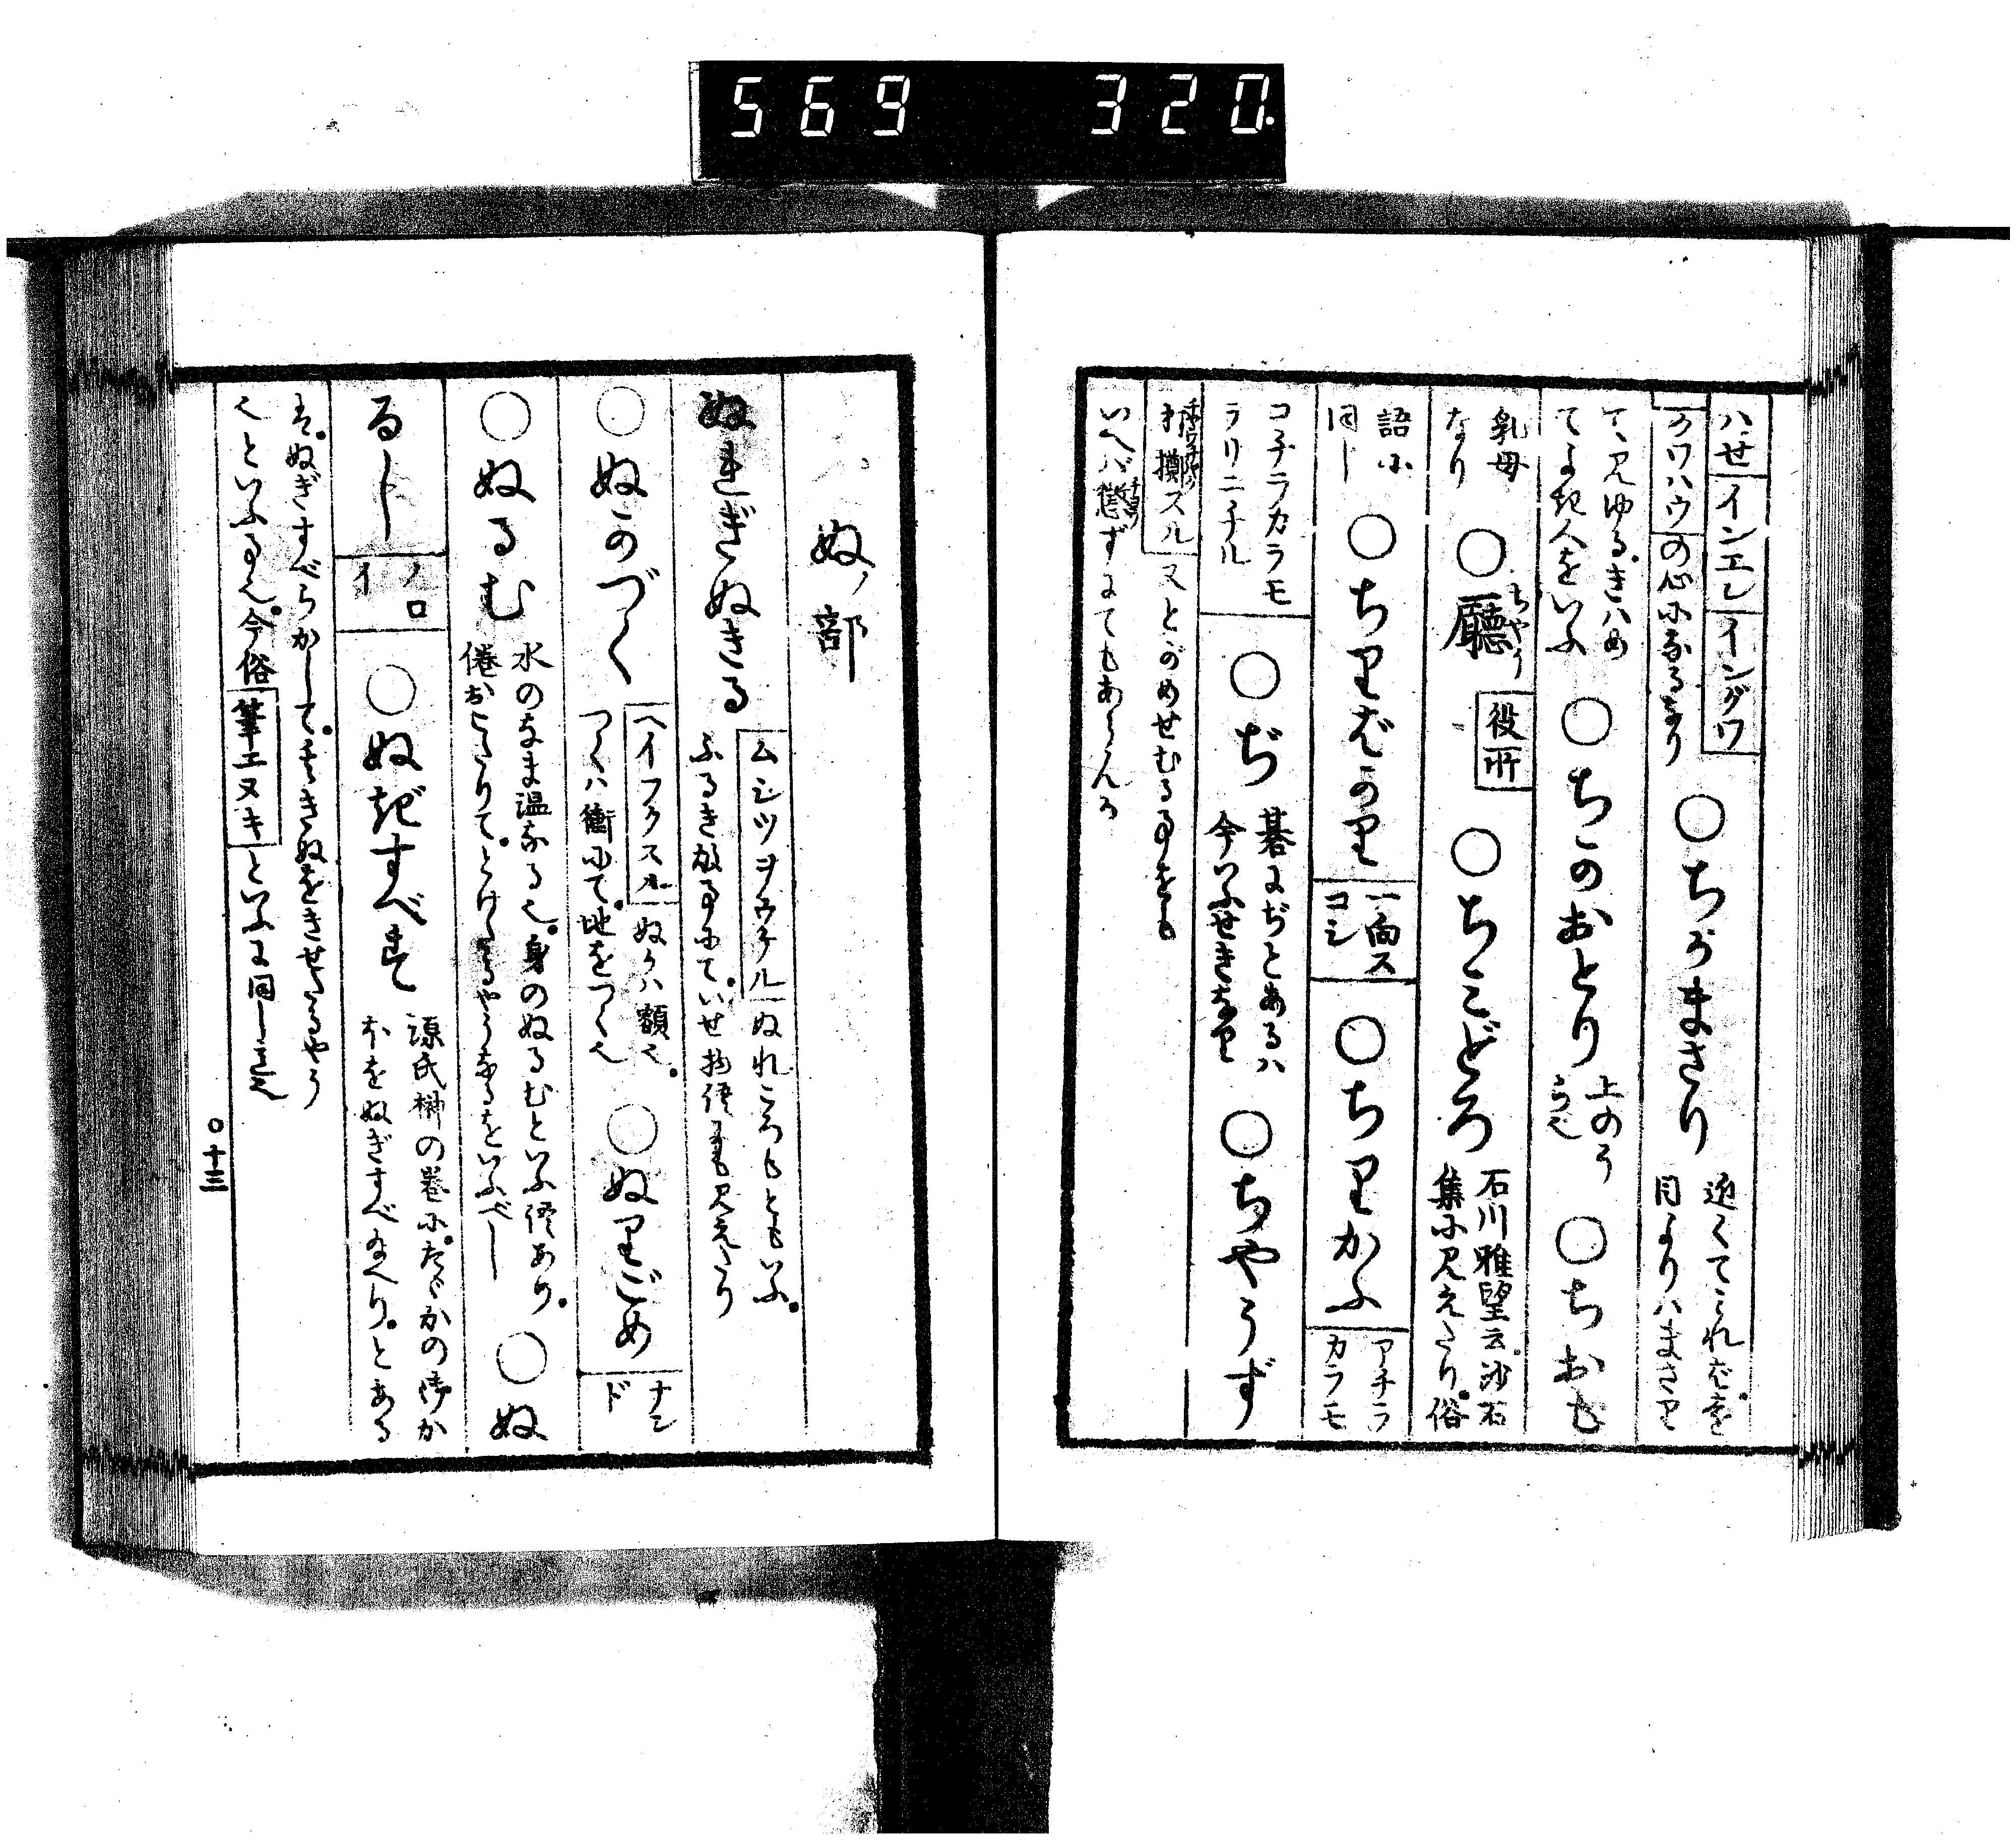 569 320.
ハセ インエン イングワ
クワハウ の心になるなり
○ちかまさり
近くてこれバを
目よりハまさり
て、見ゆる。きハめ
てよき人をいふ
○ちこのおとり
上のう
らや
○ちおも
乳母
なり
○廳
ちやう
役所
○ちこどろ
石川雅望云。沙石
集に見えたり。俗
語に
同し
○ちりばかり
一面ス
コシ
○ちりかふ
アチラ
カラモ
コチラカラモ
ラリニチル
○ぢ
碁にぢとあるハ
今いふせきなり
○ちやうず
打擲スル 又とがめせむる事をも
いへバ懲ずにてもあらんか
ぬノ部
ぬれぎぬきる
ムジツヲウケル ぬれころもともいふ。
ふるき故事にて。いせ物語にも見えたり
○ぬかづく
ヘイフクスル ぬかハ額也。
つくハ衝にて。地をつく也
○ぬりごめ
ナン
ド
○ぬるむ
水のなま温なる也。身のぬるむといふ語あり。
倦おこたりて。とけたるやうなるをいふべし
○ぬ
るし
ノロ
イ
○ぬぎすべす
源氏榊の巻に。たゞかの御か
ほをぬぎすべ給へり。とある
ハ。ぬぎすべらかして。
也といふ事也。今俗 筆エヌキ といふに同し
○十三